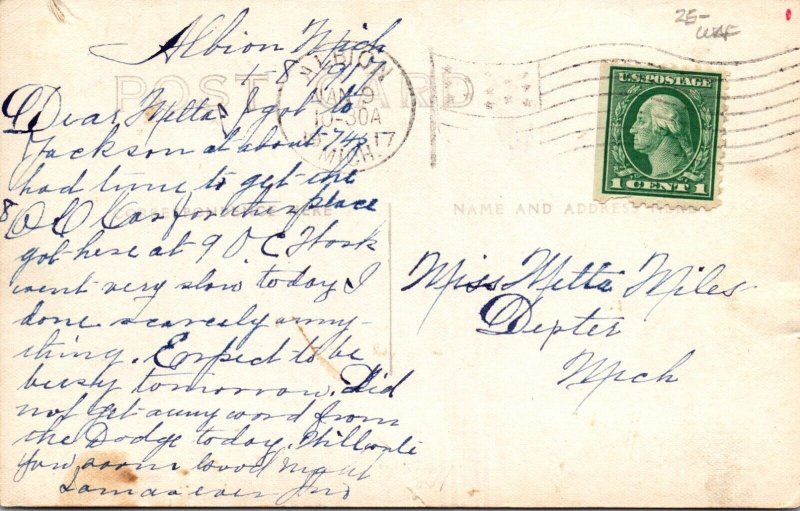 25-
Albion Mich
1-8-1917
POST CARD
ALBION
JAN 9
10-30A
1917
MICH.
U.S. POSTAGE
1 CENT 1
Dear Metta I got to
Jackson at about 745
had time to get the
8 O C Car for this place
CORRESPONDENCE HERE
NAME AND ADDRESS HERE
got here at 9 O.C. Work
went very slow today I
done scarcely anny-
thing. Expect to be
buisy tomorrow. Did
not get anny word from
the Dodge today. Will write
you soon
Miss Metta Miles
Dexter
Mich